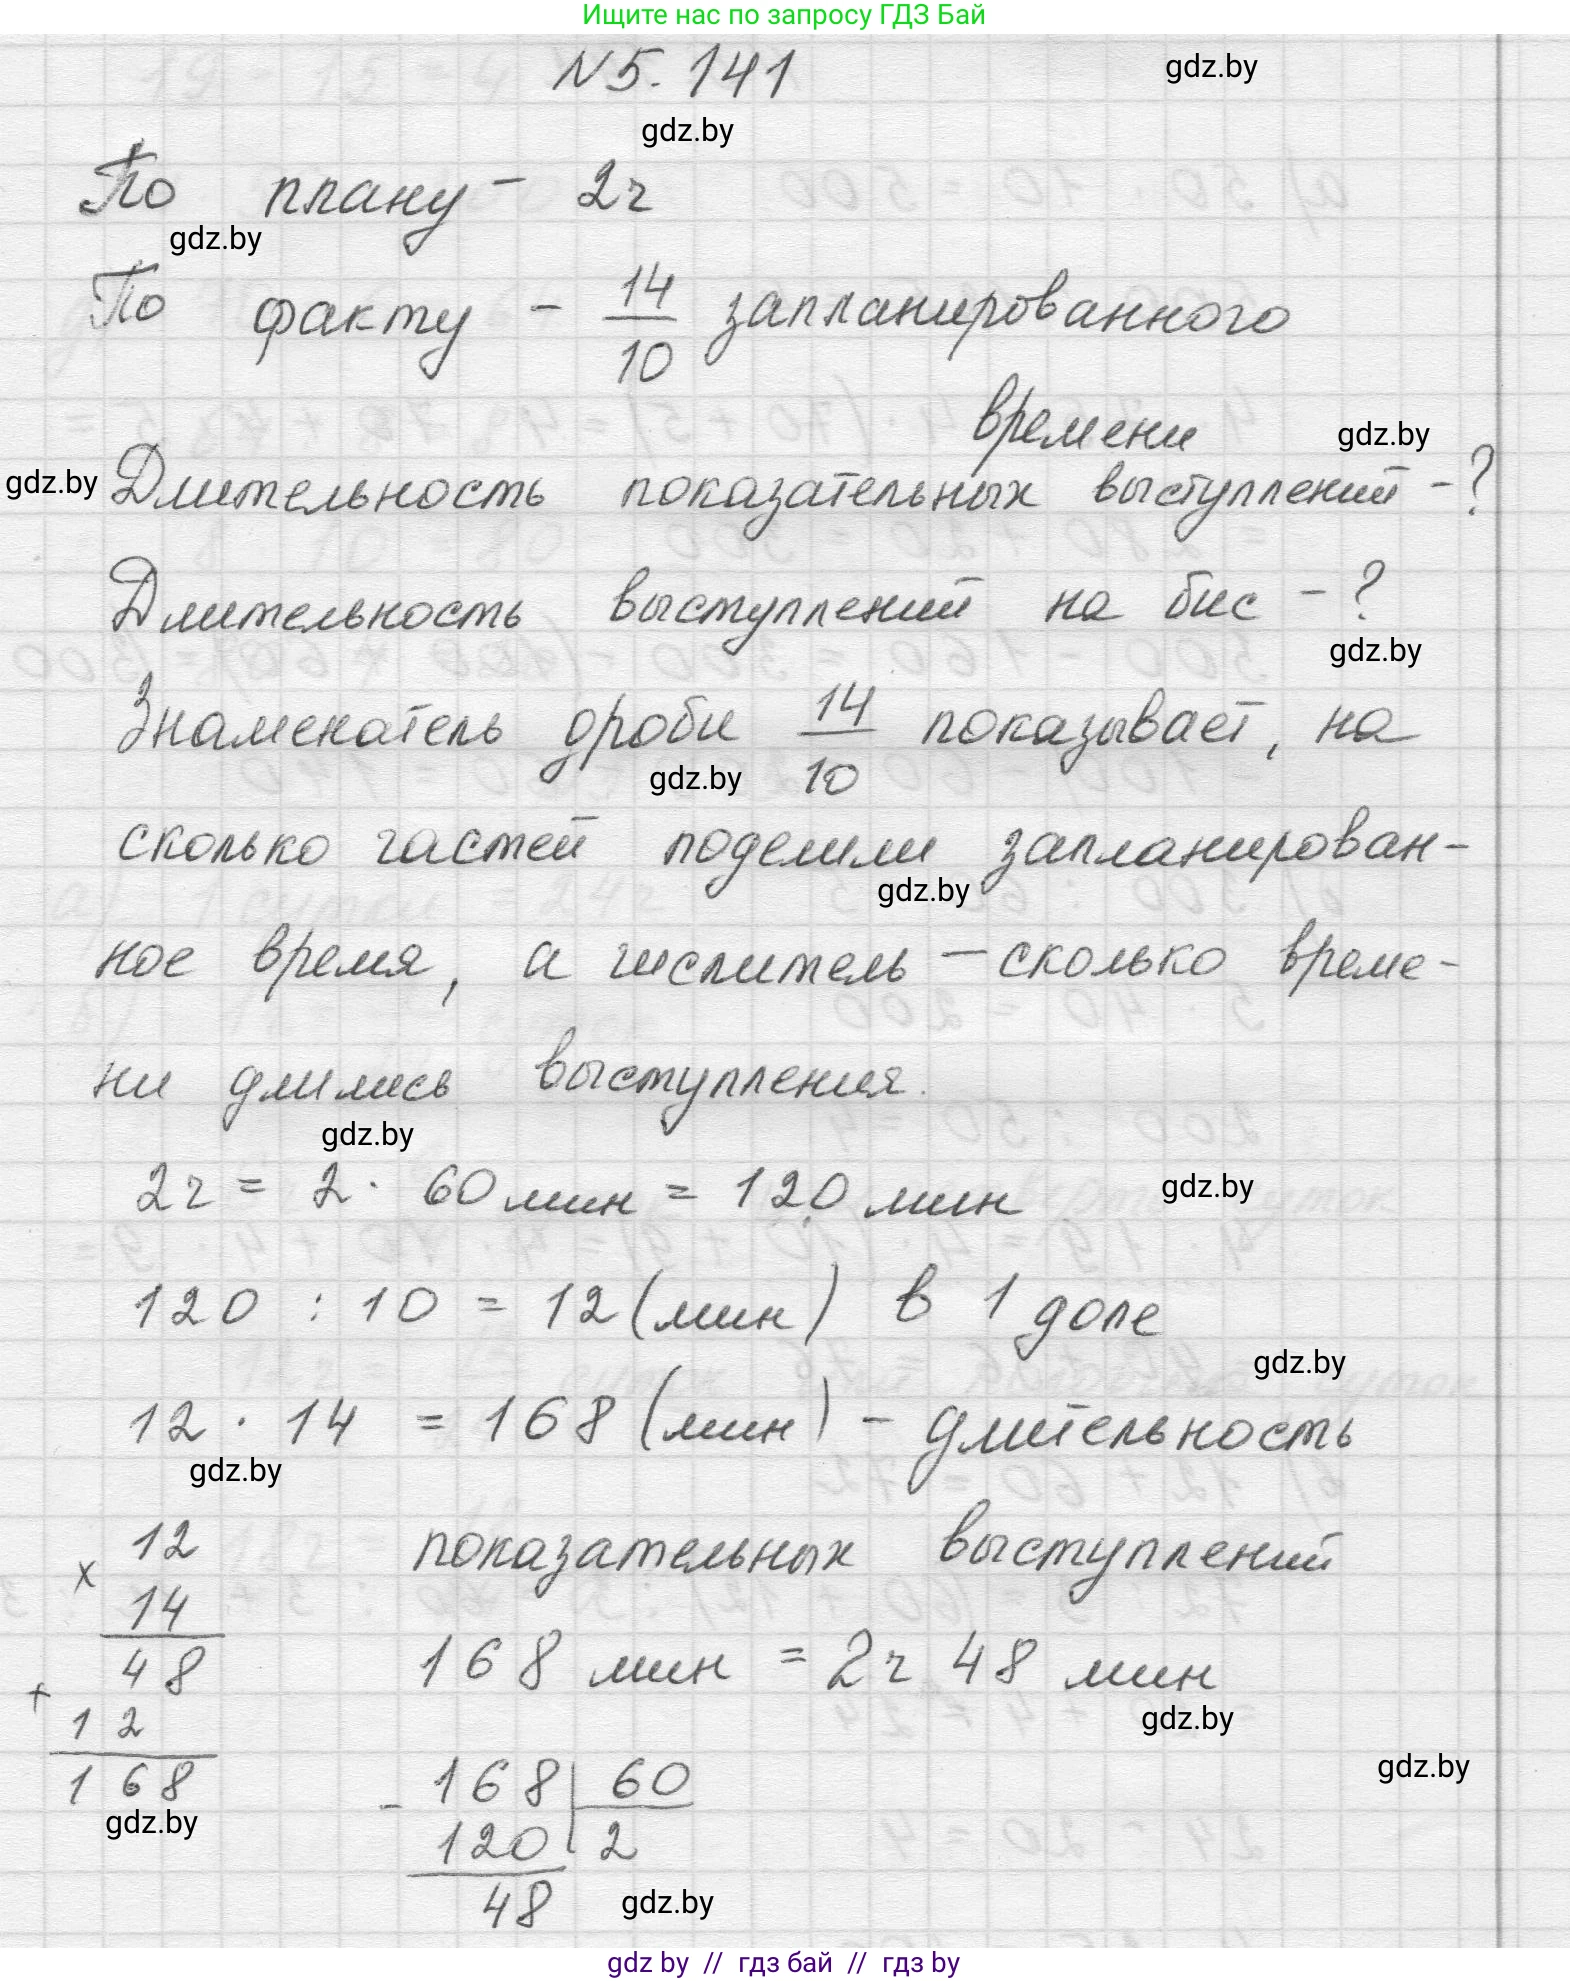 Ищите нас по запросу ГДЗ Бай
N 5.141
gdz.by
gdz.by
По плану - 2ч
gdz.by
По факту - 14/10 запланированного
времени
gdz.by
gdz.by
Длительность показательных выступлений - ?
Длительность выступлений на бис - ?
gdz.by
Знаменатель дроби 14/10 показывает, на
gdz.by
сколько частей поделили запланирован-
gdz.by
ное время, а числитель - сколько време-
ни длились выступления.
gdz.by
2ч = 2 · 60 мин = 120 мин
gdz.by
120 : 10 = 12 (мин) в 1 доле
gdz.by
12 · 14 = 168 (мин) - длительность
gdz.by
показательных выступлений
x 12
14
48
+ 12
168
gdz.by
168 мин = 2ч 48 мин
gdz.by
gdz.by
- 168 | 60
120 | 2
48
gdz.by
gdz by // гдз бай // гдз by